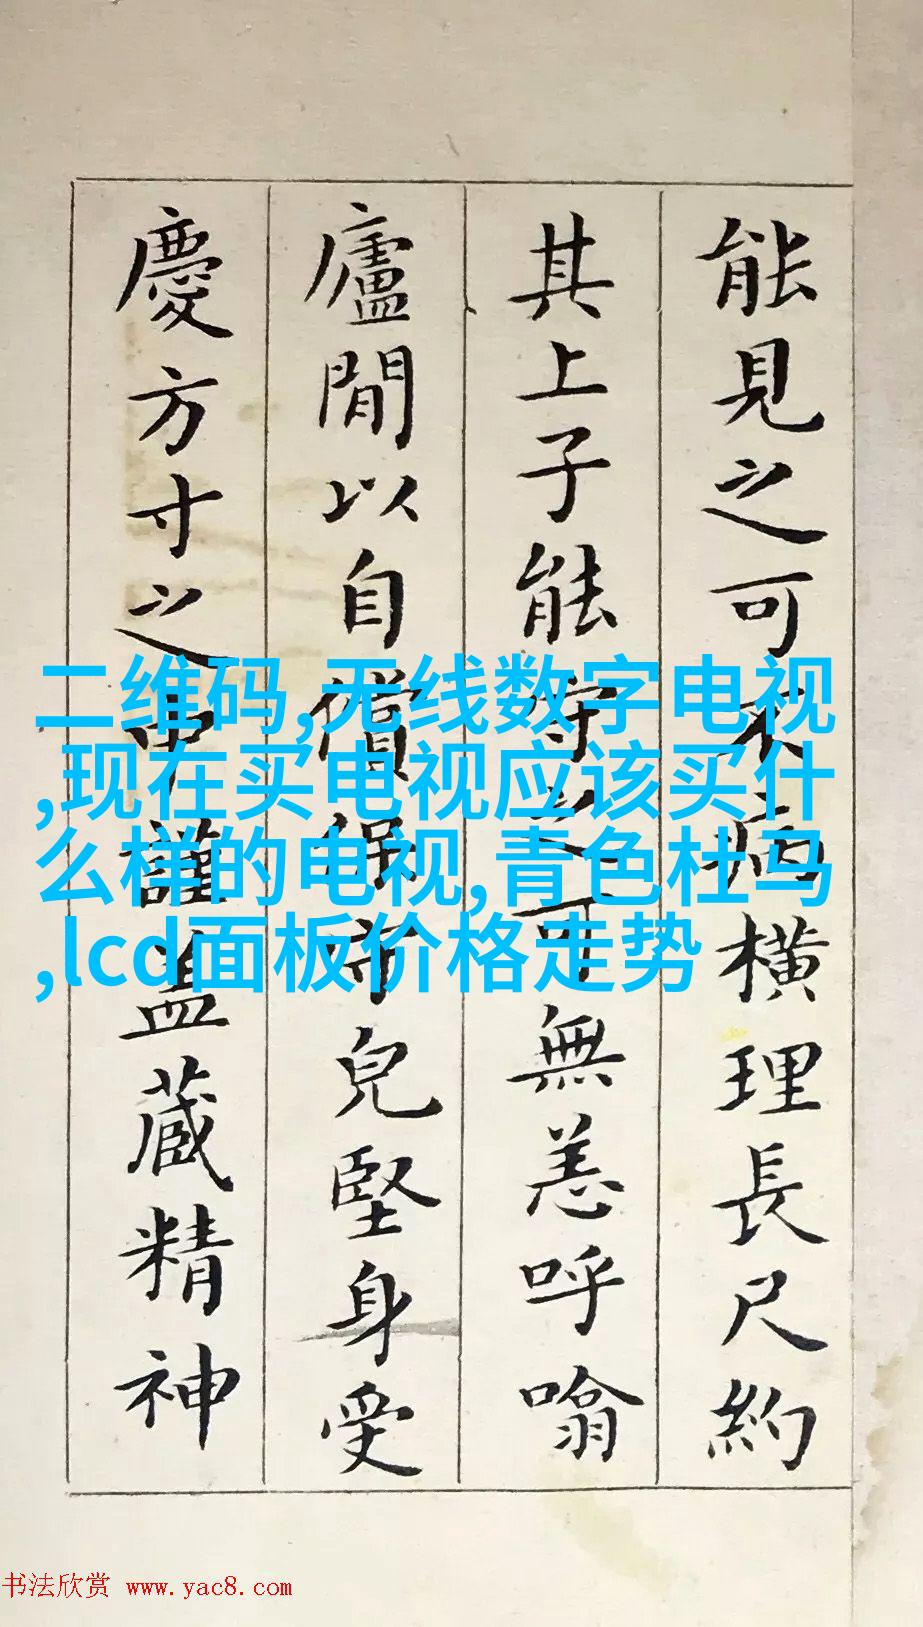 能見之可不病橫理長尺約
其上子能守之可無恙呼噏
廬閒以自償保守兒堅身受
慶方寸之中謹蓋藏精神
二维码,无线数字电视
,现在买电视应该买什
么样的电视,青色杜马
,lcd面板价格走势
书法欣赏 www.yac8.com